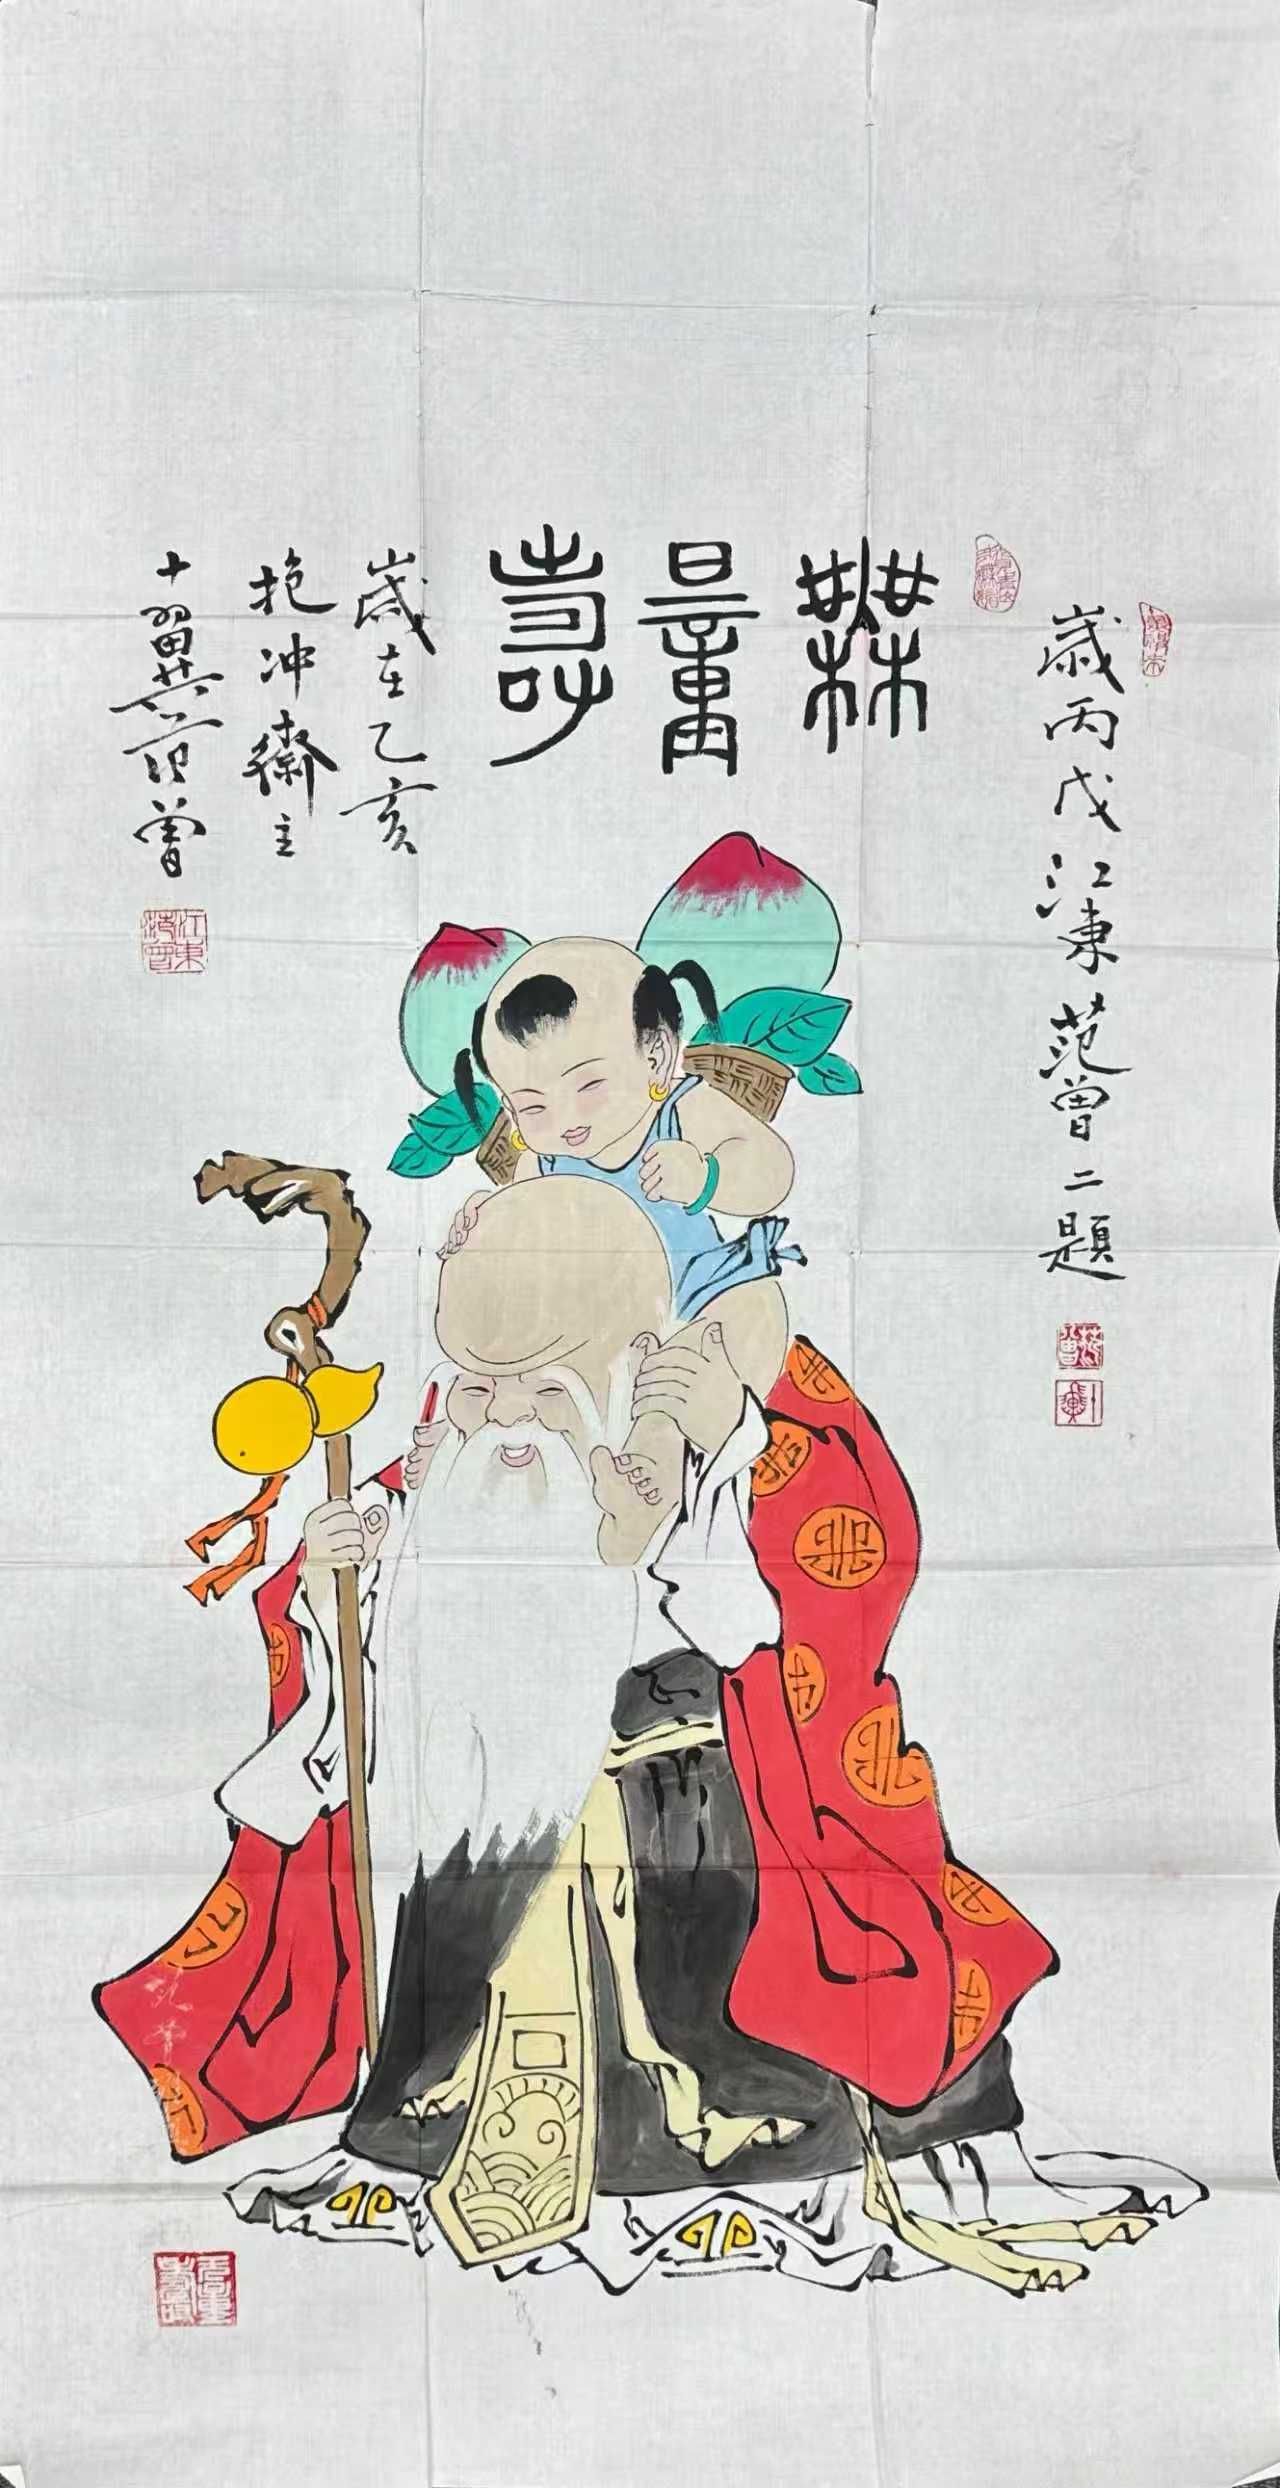 歲丙戌江東范曾二題
無量壽
歲在乙亥
抱冲齋主
十翼范曾
江東范曾